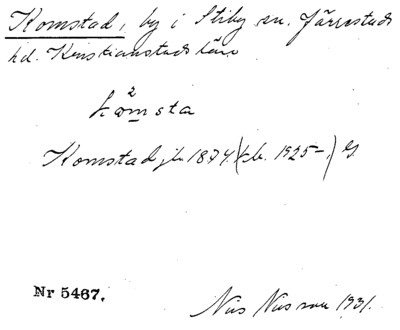 Komstad, by i Stiby sn. Järrestads
hd. Kristianstads län
2
kåmsta
Komstad jb 1874 (kb. 1925-,) G.
Nr 5467.
Nils Nilsson 1931.